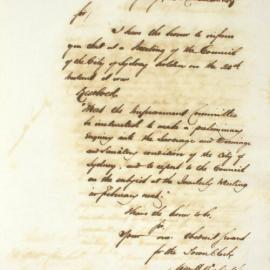 Sir,
I have the honor to inform
you that at a Meeting of the Council
of the City of Sydney holden on the 20th
Instant it was
Resolved.
"That the Improvement Committee
be instructed to make a preliminary
enquiry into the Sewerage and Drainage
and Sanitary condition of the City of
Sydney, and to report to the Council
on the subject at the Quarterly Meeting
in February next."
I have the honor to be,
Sir,
Your obedient Servant
for the Town Clerk